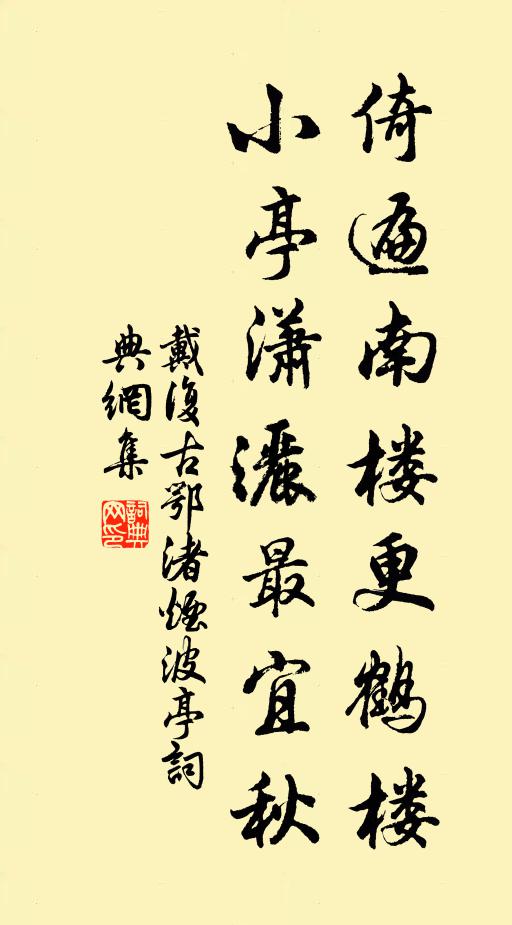 倚遍南楼更鹤楼
小亭瀟灑最宜秋
戴復古鄂渚煙波亭詞
典網集
詞典網印